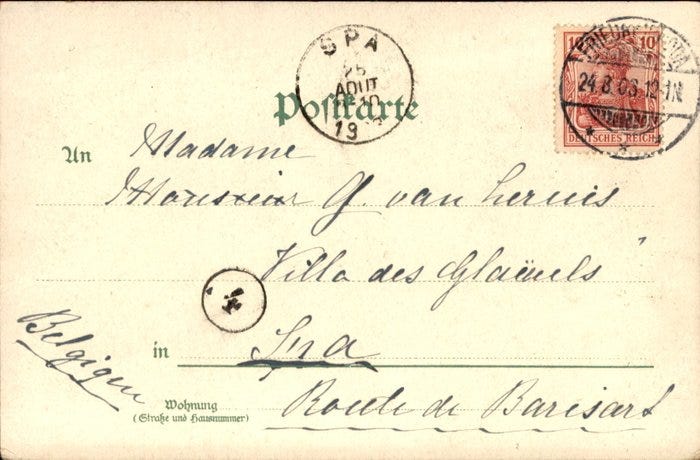 SPA
25
AOUT
10
19
10 10
DEUTSCHES REICH
24.8.03.12-1N.
Postkarte
An Madame
Monsieur G. van
Villa des Glaïeuls
4
Belgique
in Spa
Wohnung
(Straße und Hausnummer)
Route de Barisart